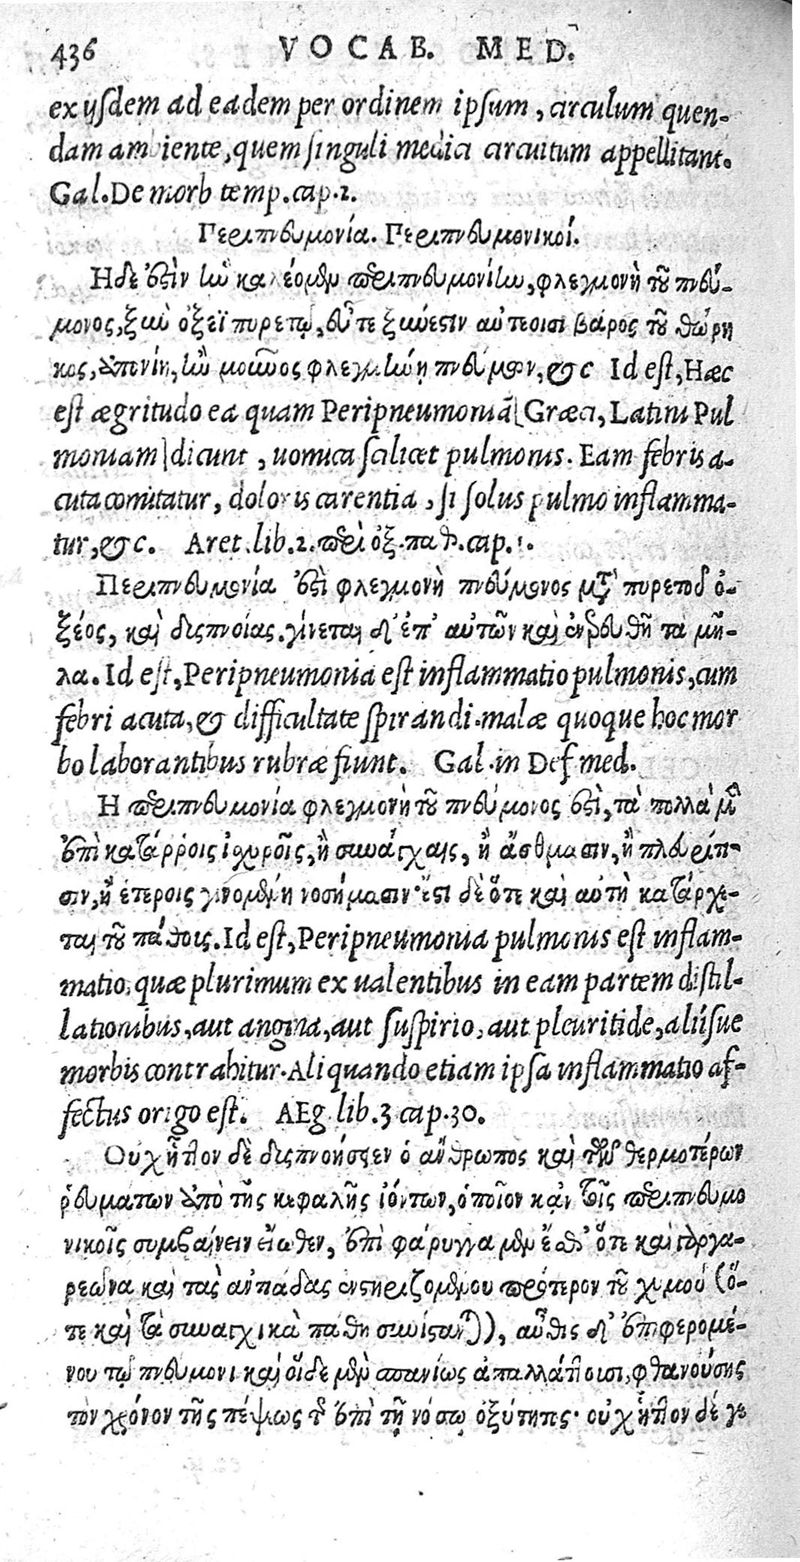 436 VOCAB. MED.
ex ijsdem ad eadem per ordinem ipsum, circulum quen-
dam ambiente, quem singuli medici circuitum appellitant.
Gal. De morb temp. cap. 2.
Περιπνευμονία. Περιπνευμονικοί.
Ηδε ἐστὶν ἣν καλέομεν περιπνευμονίην, φλεγμονὴ τοῦ πνεύ-
μονος, ξὺν ὀξεῖ πυρετῷ, εὖτε ξύνεστιν αὐτέοισι βάρος τοῦ θώρη
κος, ἀπονίη, ἢν μοῦνος φλεγμήνῃ πνεύμων, &c Id est, Hæc
est ægritudo ea quam Peripneumoniã Græci, Latini Pul
moniam dicunt, uomica scilicet pulmonis. Eam febris a-
cuta comitatur, doloris carentia, si solus pulmo inflamma-
tur, &c. Aret. lib. 2. περὶ ὀξ. παθ. cap. 1.
Περιπνευμονία ἐστὶ φλεγμονὴ πνεύμονος μετὰ πυρετοῦ ὀ-
ξέος, καὶ δυσπνοίας. γίνεται δ' ἐπ' αὐτῶν καὶ ἐρευθῆ τὰ μῆ-
λα. Id est, Peripneumonia est inflammatio pulmonis, cum
febri acuta, & difficultate spirandi. malæ quoque hoc mor
bo laborantibus rubræ fiunt. Gal. in Def med.
Η περιπνευμονία φλεγμονὴ τοῦ πνεύμονος ἐστὶ, τὰ πολλὰ μὲν
ἐπὶ κατάῤῥοις ἰχυροῖς, ἢ συνάγχαις, ἢ ἄσθμασιν, ἢ πλευρίτι-
σιν, ἢ ἑτέροις γινομένη νοσήμασιν· ἔστι δὲ ὅτε καὶ αὐτὴ κατάρχε-
ται τοῦ πάθους. Id est, Peripneumonia pulmonis est inflam-
matio, quæ plurimum ex ualentibus in eam partem distil-
lationibus, aut angina, aut suspirio, aut pleuritide, aliisue
morbis contrahitur. Aliquando etiam ipsa inflammatio af-
fectus origo est. AEg. lib. 3 cap. 30.
Ουχ ἧττον δὲ δυσπνοήσειεν ὁ ἄνθρωπος καὶ τῶν θερμοτέρων
ῥευμάτων ἀπὸ τῆς κεφαλῆς ἰόντων, ὁποῖον κἀν τοῖς περιπνευμο
νικοῖς συμβαίνειν εἴωθεν, ἐπὶ φάρυγγα μὲν ἔσθ' ὅτε καὶ γαργα-
ρεῶνα καὶ τὰς ἀντιάδας ἐνστηριζομένου πρότερον τοῦ χυμοῦ (ὅ-
τε καὶ τὰ συναγχικὰ πάθη συνίσταται), αὖθις δ' ἐπιφερομέ-
νου τῷ πνεύμονι καὶ οἵδε μὲν σπανίως ἀπαλλάττουσι, φθανούσης
τὸν χρόνον τῆς πέψεως τῆς ἐπὶ τῇ νόσῳ ὀξύτητος· οὐχ ἧττον δέ γε